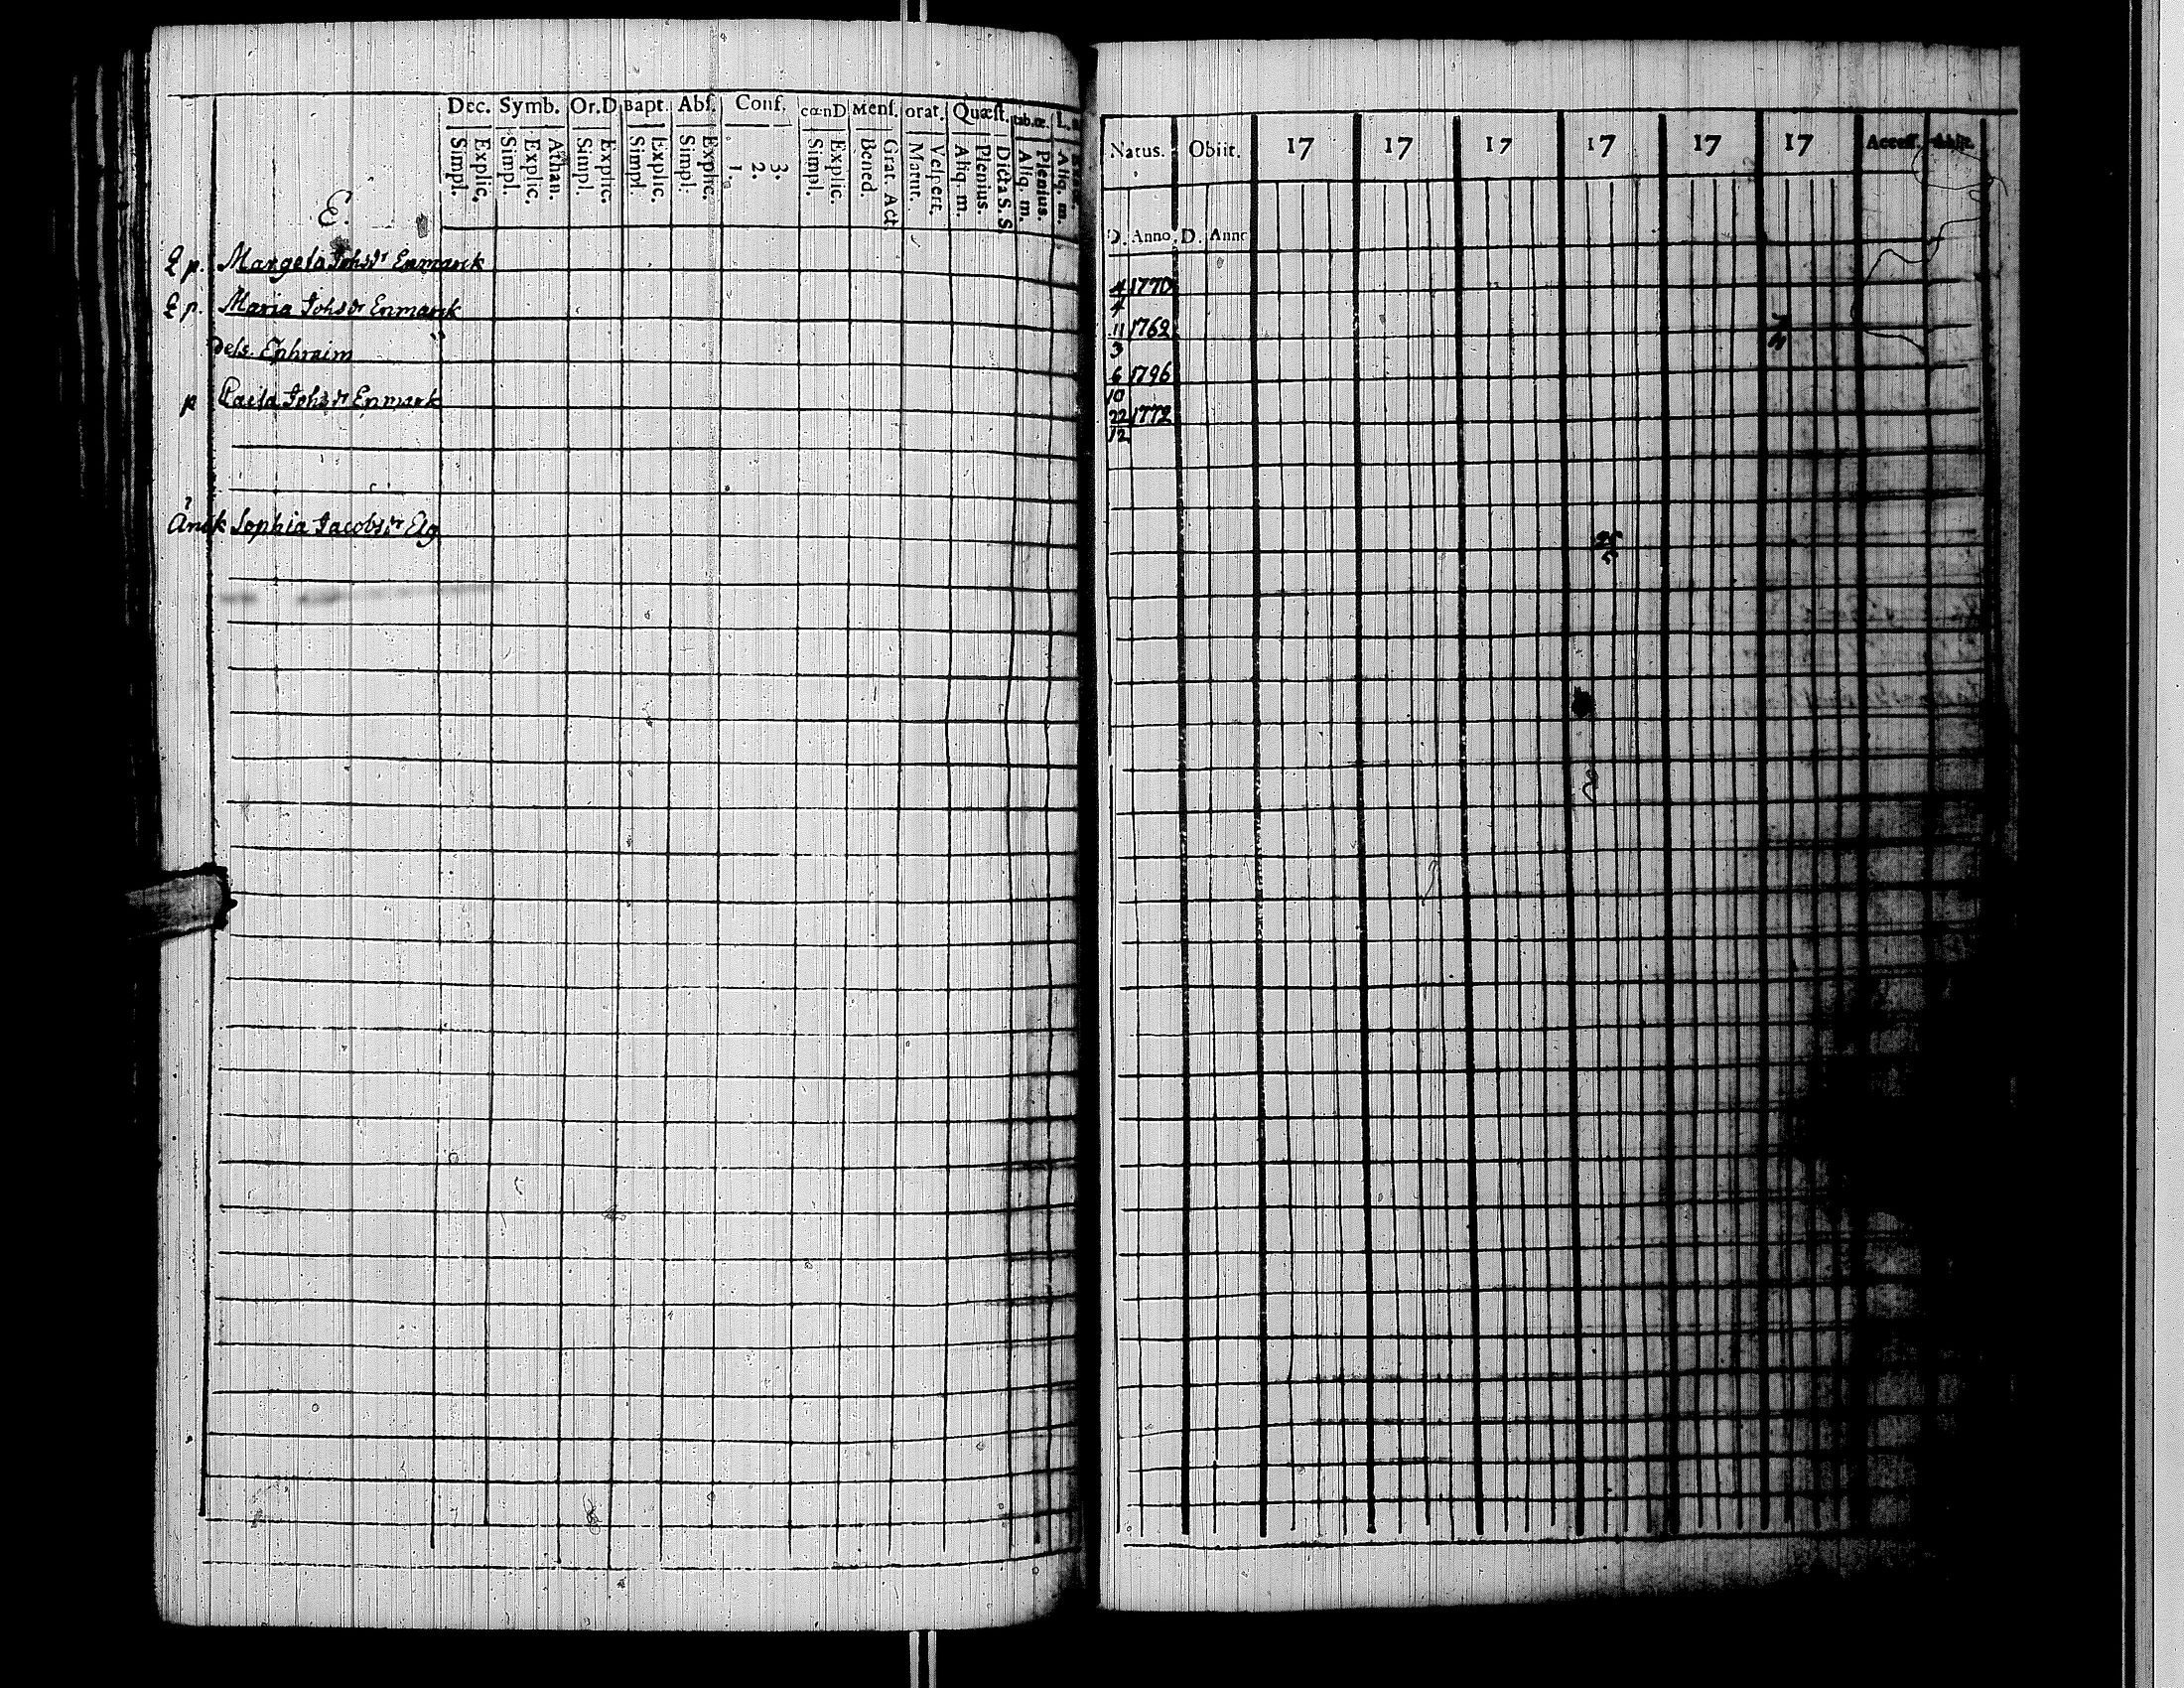 Dec. Symb. Or.D Bapt. Abs. Conf. cœnD Mens. orat. Quæst. tab.œ. L.
Simpl. Explic. Simpl. Explic. Athan. Simpl. Explic. Simpl. Explic. Simpl. Explic. 1. 2. 3. Simpl. Explic. Bened. Grat. Act Matut. Vespert. Aliq. m. Plenius. Dicta S. S Aliq. m. Plenius. Aliq. m.
E.
p. Margeta Johsdr Enmarck
p. Maria Johsdr Enmarck
Dess. Ephraim
p Caisa Johsdr Enmark
Änck Sophia Jacobsdr Elg
Natus. Obiit. 17 17 17 17 17 17 Access. Abiit.
D. Anno D. Anno
4 1770
4
11 1762
3
6 1796
10
22 1772
12
25
5